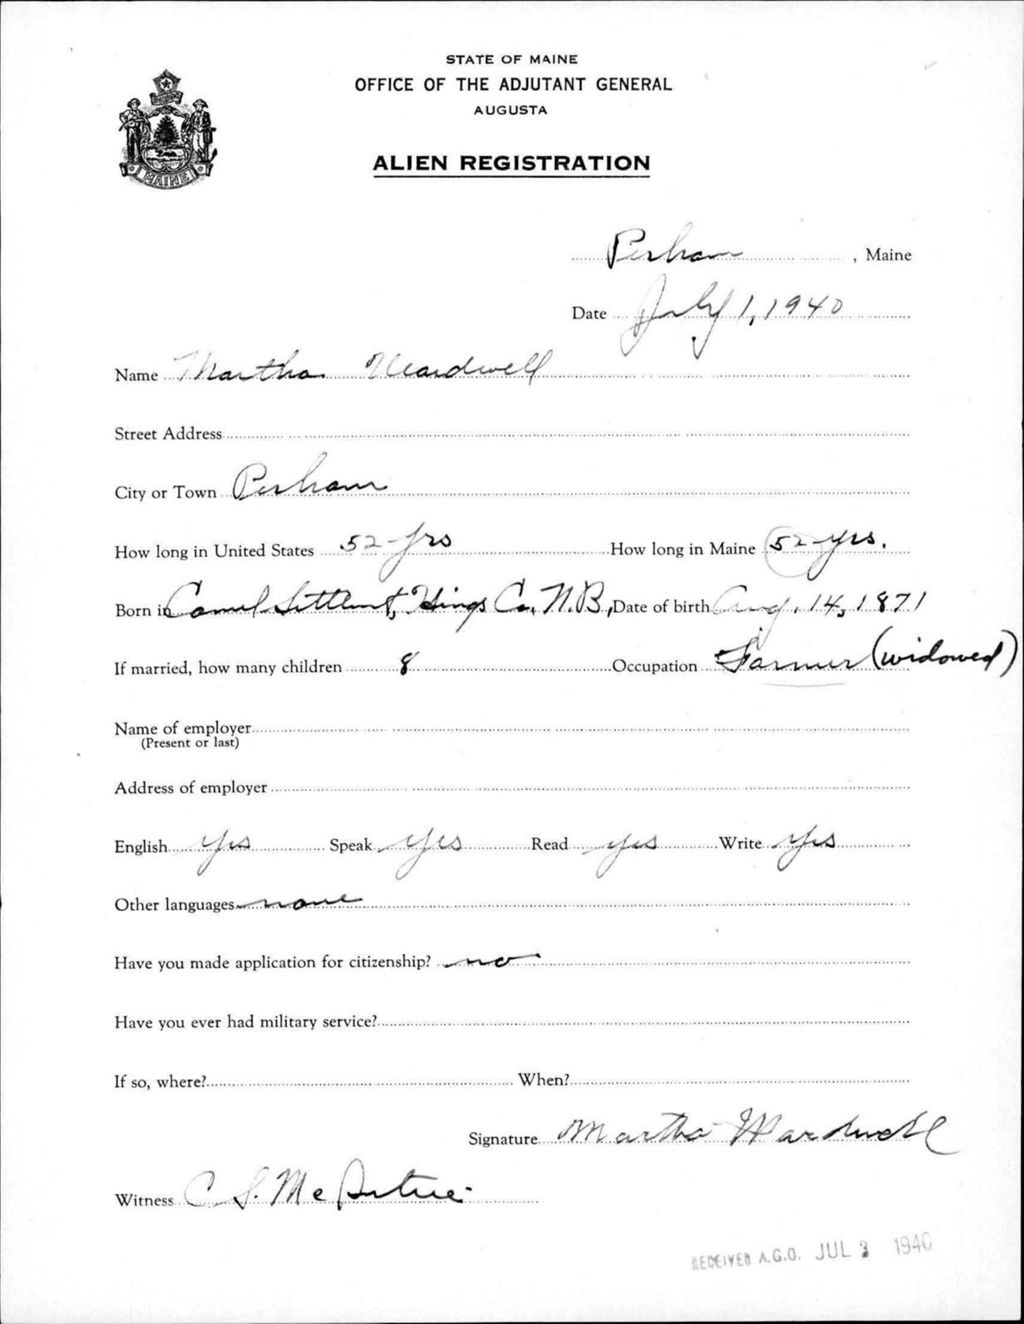 STATE OF MAINE
OFFICE OF THE ADJUTANT GENERAL
AUGUSTA
MAINE
ALIEN REGISTRATION
Perham, Maine
Date July 1, 1940
Name Martha Wardwell
Street Address
City or Town Perham
How long in United States 52-yrs How long in Maine 52-yrs.
Born in Settlemt, Kings Co, N.B, Date of birth Aug. 14, 1871
If married, how many children 8 Occupation Farmer (widowed)
Name of employer
(Present or last)
Address of employer
English yes Speak yes Read yes Write yes
Other languages none
Have you made application for citizenship? no
Have you ever had military service?
If so, where? When?
Signature Martha Wardwell
Witness C S. Mc
RECEIVED A.G.O. JUL 3 1940